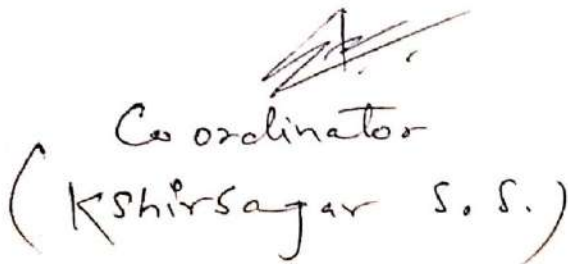 Coordinator
(Kshirsagar S. S.)